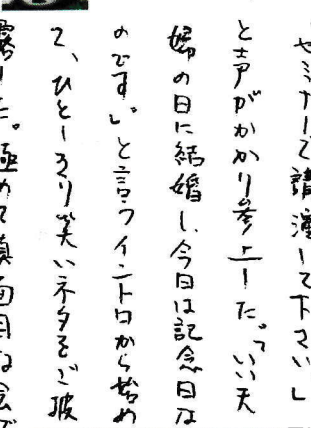 セミナーで講演して下さい」
と声がかかり参上した。"いい天
婦の日に結婚し、今日は記念日な
のです"と言うイントロから始め
て、ひとしきり笑いネタをご披
露した。極めて真面目な会で